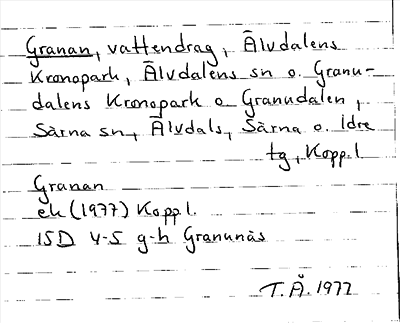 Granan, vattendrag, Älvdalens
Kronopark, Älvdalens sn o. Granu-
dalens Kronopark o Granudalen,
Särna sn, Älvdals, Särna o. Idre
tg, Kopp.l.
Granan
ek (1977) Kopp.l.
15D 4-5 g-h Granunäs
T.Å. 1977